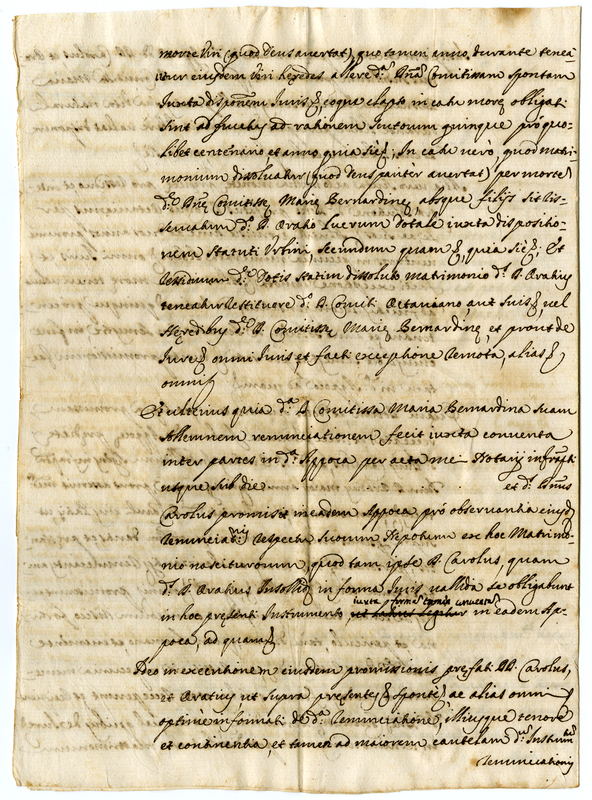 morte Viri (quod Deus avertat), quo tamen anno, durante tenea
tur eiusdem Viri heredes alere d.ᵃ Illma Comitissam Sponsam
Iuxta disponem Iuris &, eoque elapso in casu more obligati
Sint ad fructus ad rationem scutorum quinque pro quo-
libet centenario, et anno quia sic &; In casu vero, quod matri-
monium dissolvatur (quod Deus pariter avertat) per mortem
d.ᵉ Illme Comitisse Marie Bernardine, absque filijs sit lis-
d.º D. Oratio Lucrum Dotale iuxta dispositio-
nem Statuti Urbini, secundum quam &, quia sic &; Et
d.ᵉ Dotis statim dissoluto matrimonio d.º D. Oratius
teneatur restituere d.º D. Comiti Octaviano, aut suis &, vel
Heredibus d.ᵉ D. Comitisse Marie Bernardine, et prout de
Iure &, omni Iuris, et facti exceptione remota, alias &
omni &
Et ulterius quia d.ᵃ D. Comitissa Maria Bernardina suam
sollemnem renunciationem fecit iuxta conventa
inter partes in d.ᵃ Appoca per acta mei Notarij infrapti
usque sub die et d.º Illmus
Carolus promisit in eadem Appoca pro observantia eiusd
renunciat:nis respectu suorum Nepotum ex hoc Matrimo-
nio nasciturorum, quod tam ipse D. Carolus, quam
d.º D. Oratius Insolid in forma Iuris valida se obligabunt
iuxta formam
in hoc presenti Instrumento in eadem Ap-
poca, ad quam &
Ideo in executionem eiusdem promissionis prefati DD. Carolus,
et Oratius ut supra presentes & sponte & ac alias omni
optime informati de d.ᵃ renunciatione, illiusque tenore
et continentia, et tamen ad maiorem cautelam d.ᵐ Instrum
renunciationis